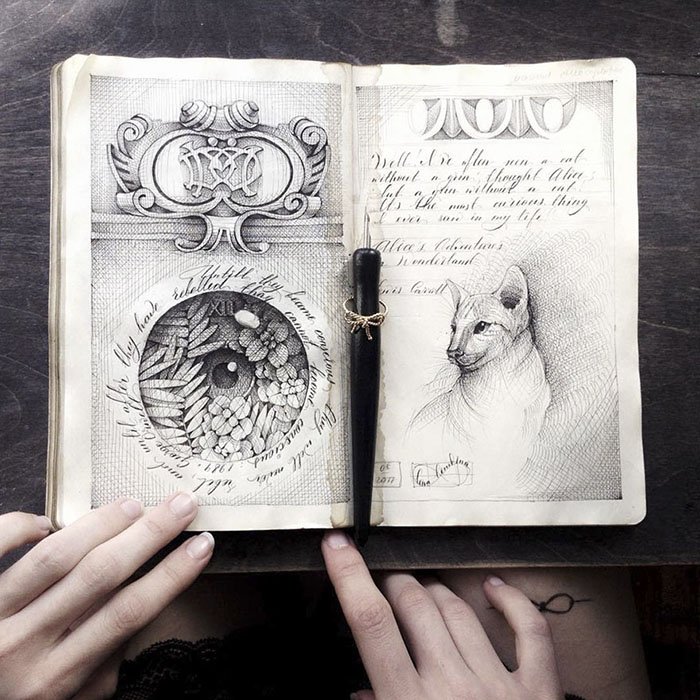 Untill they become conscious they will never rebel, and untill after they have
rebelled they cannot become conscious. 1984. George Orwell
XII
Well! I've often seen a cat
without a grin, thought Alice;
but a grin without a cat!
It's the most curious thing
I ever saw in my life!
Alice's Adventures
in Wonderland
Lewis Carroll
05
2017